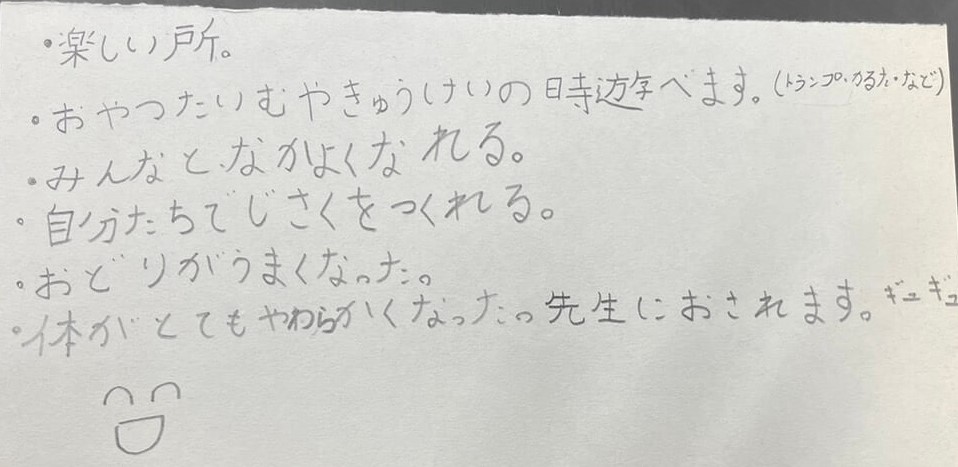 ・楽しい所。
・おやつたいむやきゅうけいの時遊べます。(トランプ・かるた・など)
・みんなと、なかよくなれる。
・自分たちでじさくをつくれる。
・おどりがうまくなった。
・体がとてもやわらかくなった。先生におされます。ギュギュ